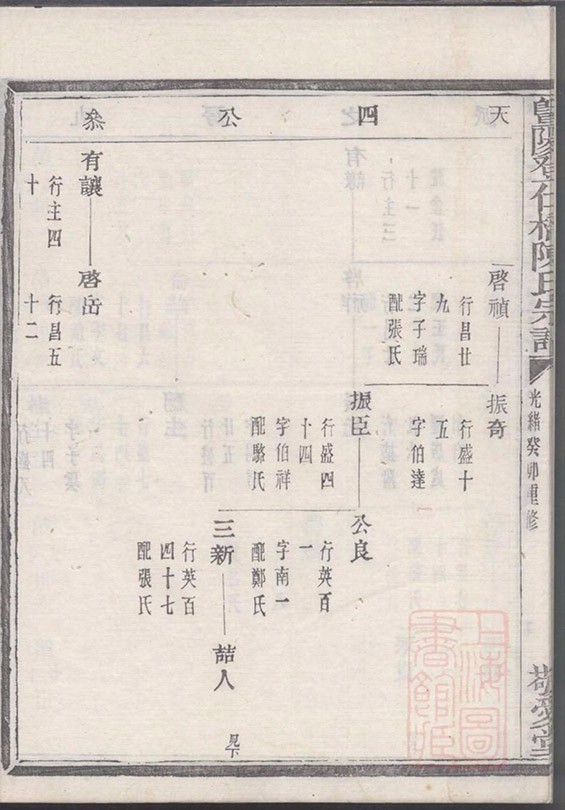 暨陽登仕橋陳氏宗譜
光緒癸卯重修
敬愛堂
天四公叅
啓禎
行昌廿
九
字子瑞
配張氏
振奇
行盛十
五
字伯達
振臣
行盛四
十四
字伯祥
配駱氏
公良
行英百
一
字南一
配鄭氏
三新
行英百
四十七
配張氏
喆人
見下
有讓
行主四
十
啓岳
行昌五
十二
上海圖
書館藏